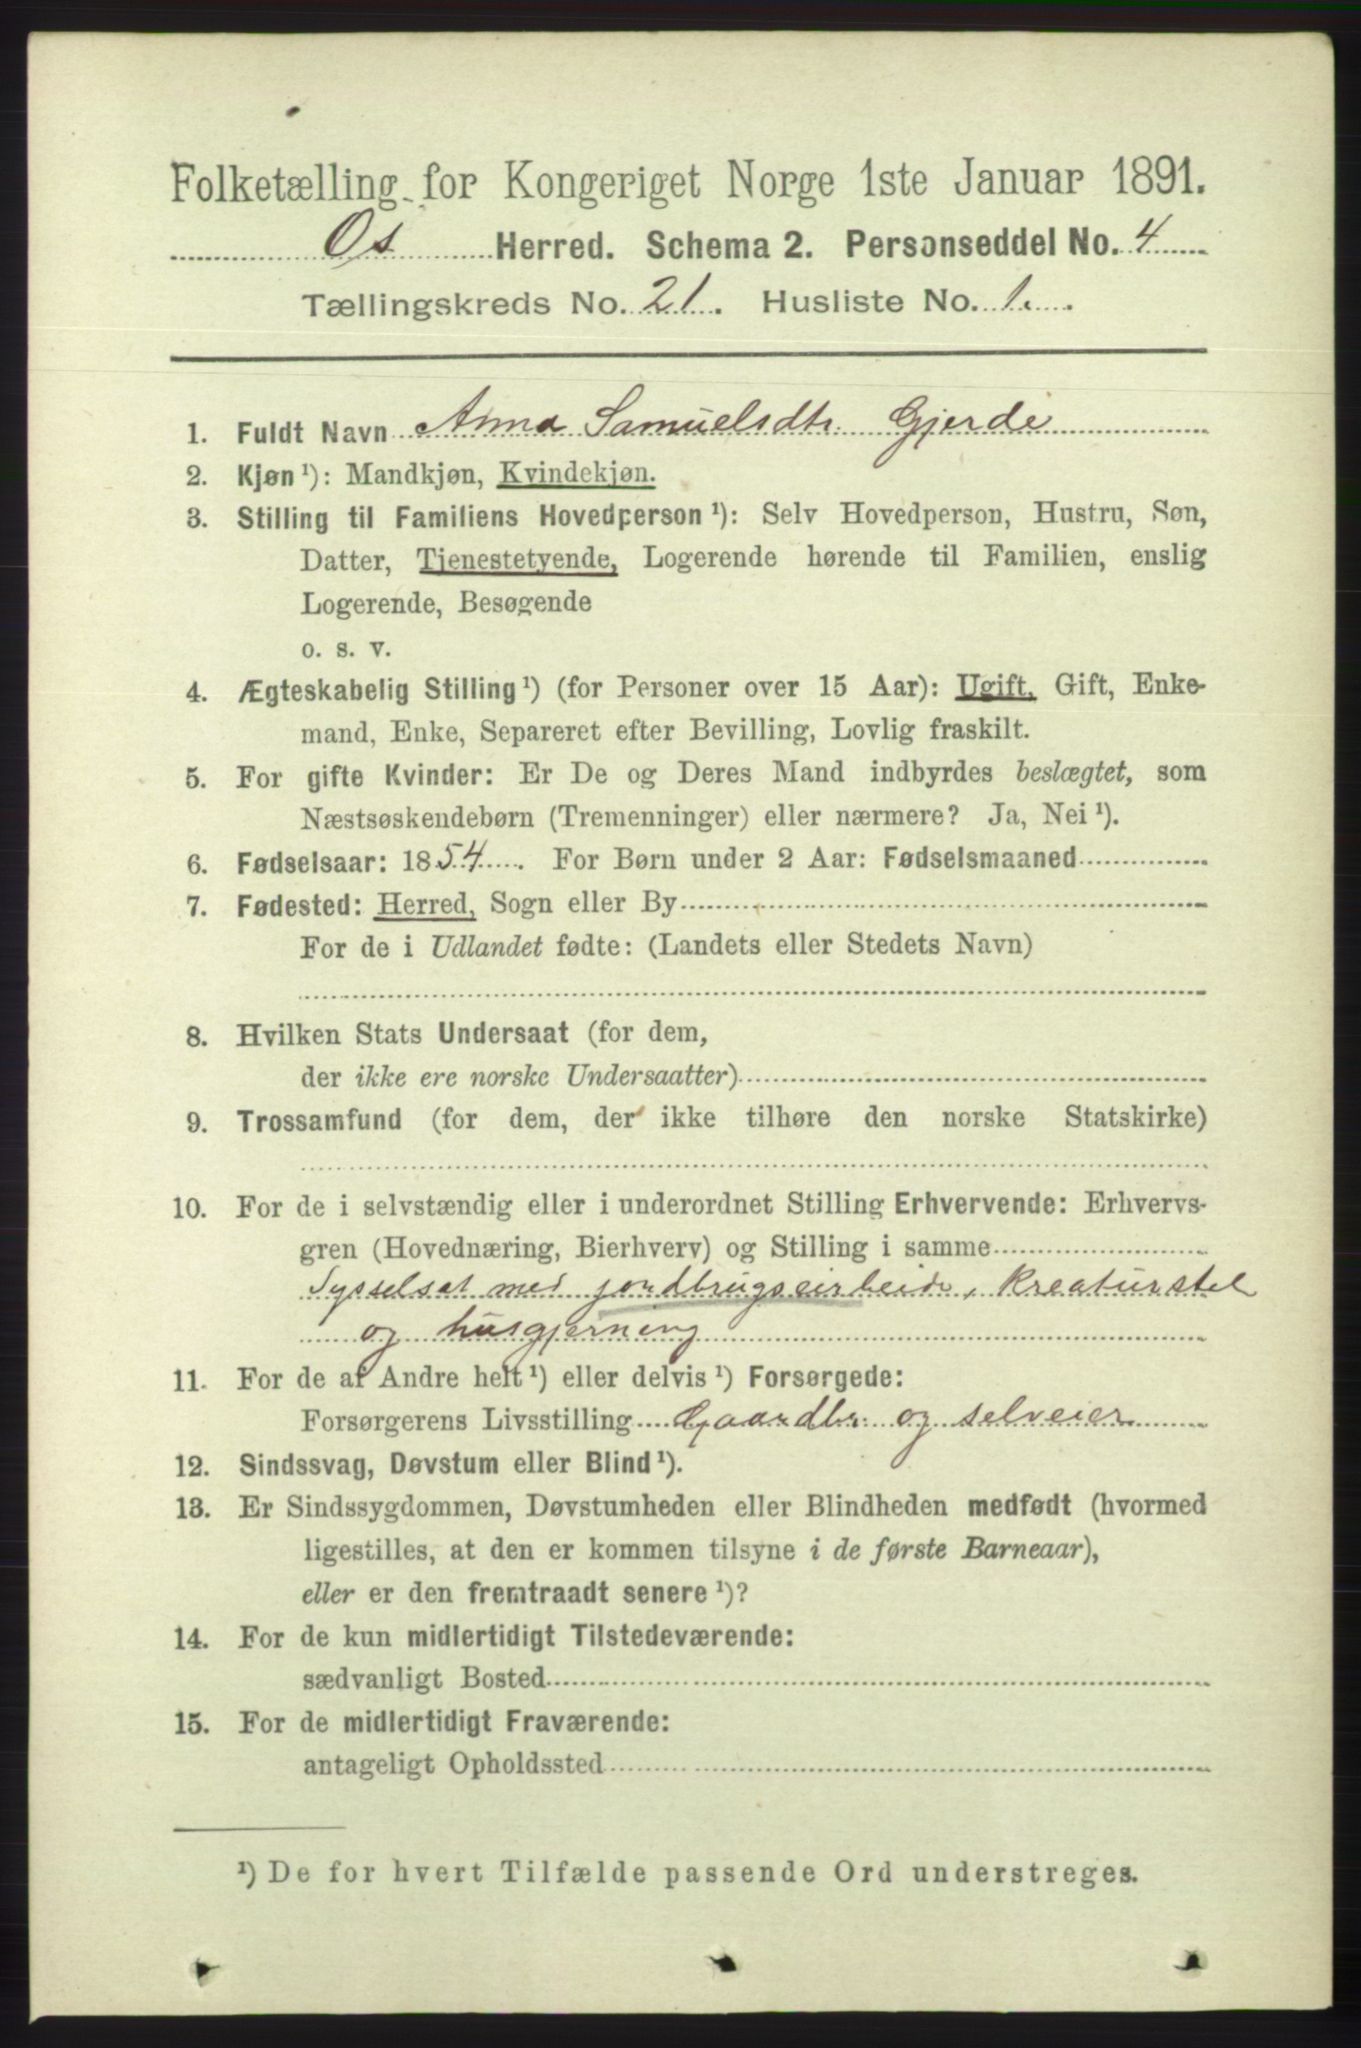 Folketælling for Kongeriget Norge 1ste Januar 1891.
Os Herred. Schema 2. Personseddel No. 4
Tællingskreds No. 21. Husliste No. 1.
1. Fuldt Navn Anna Samuelsdtr. Gjerde
2. Kjøn ¹): Mandkjøn, Kvindekjøn.
3. Stilling til Familiens Hovedperson ¹): Selv Hovedperson, Hustru, Søn,
Datter, Tjenestetyende, Logerende hørende til Familien, enslig
Logerende, Besøgende
o. s. v.
4. Ægteskabelig Stilling ¹) (for Personer over 15 Aar): Ugift, Gift, Enke-
mand, Enke, Separeret efter Bevilling, Lovlig fraskilt.
5. For gifte Kvinder: Er De og Deres Mand indbyrdes beslægtet, som
Næstsøskendebørn (Tremenninger) eller nærmere? Ja, Nei ¹).
6. Fødselsaar: 1854. For Børn under 2 Aar: Fødselsmaaned
7. Fødested: Herred, Sogn eller By
For de i Udlandet fødte: (Landets eller Stedets Navn)
8. Hvilken Stats Undersaat (for dem,
der ikke ere norske Undersaatter)
9. Trossamfund (for dem, der ikke tilhøre den norske Statskirke)
10. For de i selvstændig eller i underordnet Stilling Erhvervende: Erhvervs-
gren (Hovednæring, Bierhverv) og Stilling i samme
Sysselsat med jordbrugseirbeide, kreaturstel
og husgjerning
11. For de af Andre helt ¹) eller delvis ¹) Forsørgede:
Forsørgerens Livsstilling Gaardbr. og selveier
12. Sindssvag, Døvstum eller Blind ¹).
13. Er Sindssygdommen, Døvstumheden eller Blindheden medfødt (hvormed
ligestilles, at den er kommen tilsyne i de første Barneaar),
eller er den fremtraadt senere ¹)?
14. For de kun midlertidigt Tilstedeværende:
sædvanligt Bosted
15. For de midlertidigt Fraværende:
antageligt Opholdssted
¹) De for hvert Tilfælde passende Ord understreges.